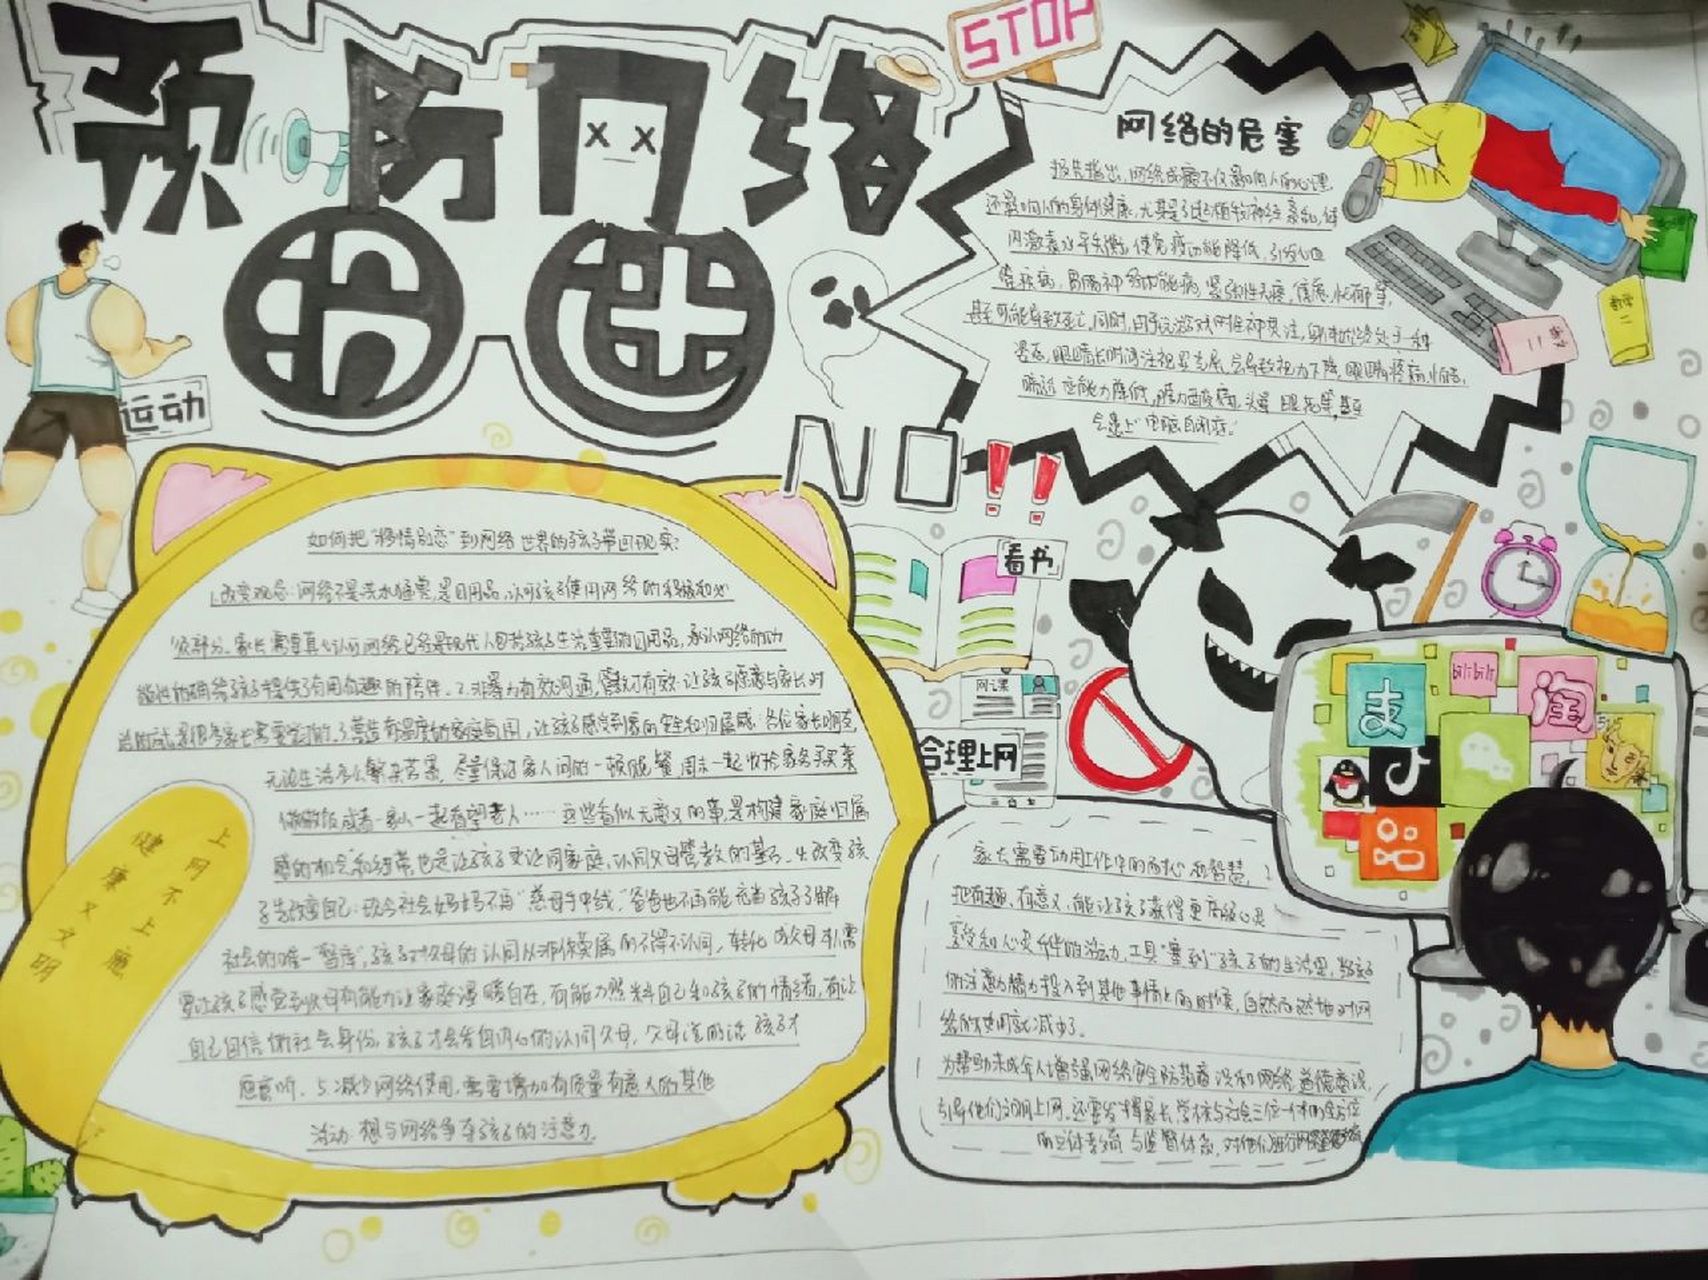 预防网络
沉迷
STOP
网络的危害
报告指出,网络成瘾不仅影响人的心理,
还影响人的身体健康,尤其是引起植物神经紊乱,体
内激素水平失衡,使免疫功能降低,引发心血
管疾病,胃肠神经功能病,紧张性头疼,焦虑,忧郁等,
甚至可能导致死亡,同时,由于玩游戏时全神贯注,身体始终处于一种
姿态,眼睛长时间注视显示屏,会导致视力下降,眼睛疼痛,怕光,
暗适应能力降低
会患上"电脑自闭症"
数学
二
运动
NO!!
看书
网课
合理上网
如何把"移情别恋"到网络世界的孩子带回现实?
1.改变观念:网络不是洪水猛兽,是日用品,认可孩子使用网络的积极和必
须部分。家长需要真心认可网络已经是现代人包括孩子生活重要的日用品,承认网络的功
能性的确给孩子提供了有用有趣的陪伴。2.非暴力有效沟通,管教才有效:让孩子愿意与家长对
话的方式是很多家长需要学习的。3.营造有温度的家庭氛围,让孩子感受到家的安全和归属感:各位家长啊
无论生活多么繁杂苦累,尽量保持家人间的一顿晚餐,周末一起收拾家务买买菜
做做饭或者一家人一起看望老人……这些看似无意义的事,是构建家庭归属
感的机会和纽带,也是让孩子更认同家庭,认同父母管教的基石。4.改变孩
子先改变自己:现今社会妈妈不再"慈母手中线,"爸爸也不再能充当孩子了解
社会的唯一"智库",孩子对父母的认同从非你莫属的不得不认同,转化成父母
要让孩子感觉到父母有能力让家庭温暖自在,有能力照料自己和孩子的情绪,有让
自己自信的社会身份,孩子才会发自内心的认同父母,父母说的话孩子才
愿意听。5.减少网络使用,需要增加有质量有意义的其他
活动:想与网络争夺孩子的注意力
上网不上瘾
健康又文明
家长需要动用工作中的耐心和智慧,
把有趣、有意义、能让孩子获得更高级心灵
享受和心灵伴的活动,工具"塞到"孩子的生活里,当孩子
的注意力精力投入到其他事情上的时候,自然而然地对网
络的使用就减少了。
为帮助未成年人增强网络安全防范意识和网络道德意识,
引导他们文明上网,还要发挥家长、学校与社会三位一体的全方位
的立体教育与监督体系
支
bilibili
淘